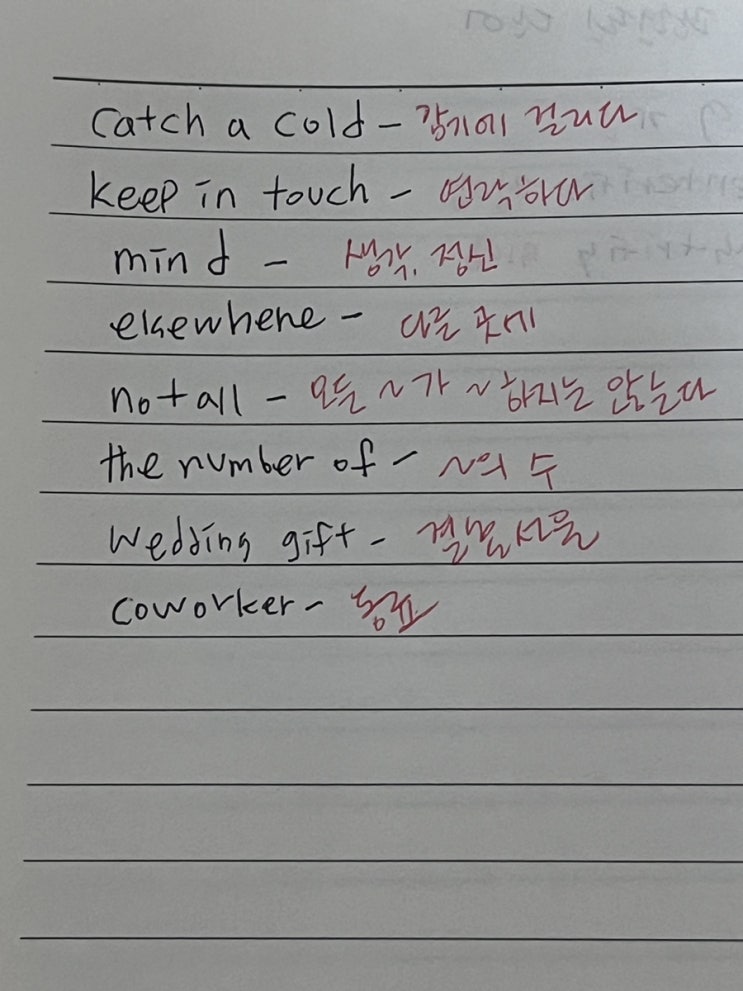 catch a cold - 감기에 걸리다
keep in touch - 연락하다
mind - 생각, 정신
elsewhere - 다른 곳에
not all - 모든 ~가 ~하지는 않는다
the number of - ~의 수
wedding gift - 결혼선물
coworker - 동료